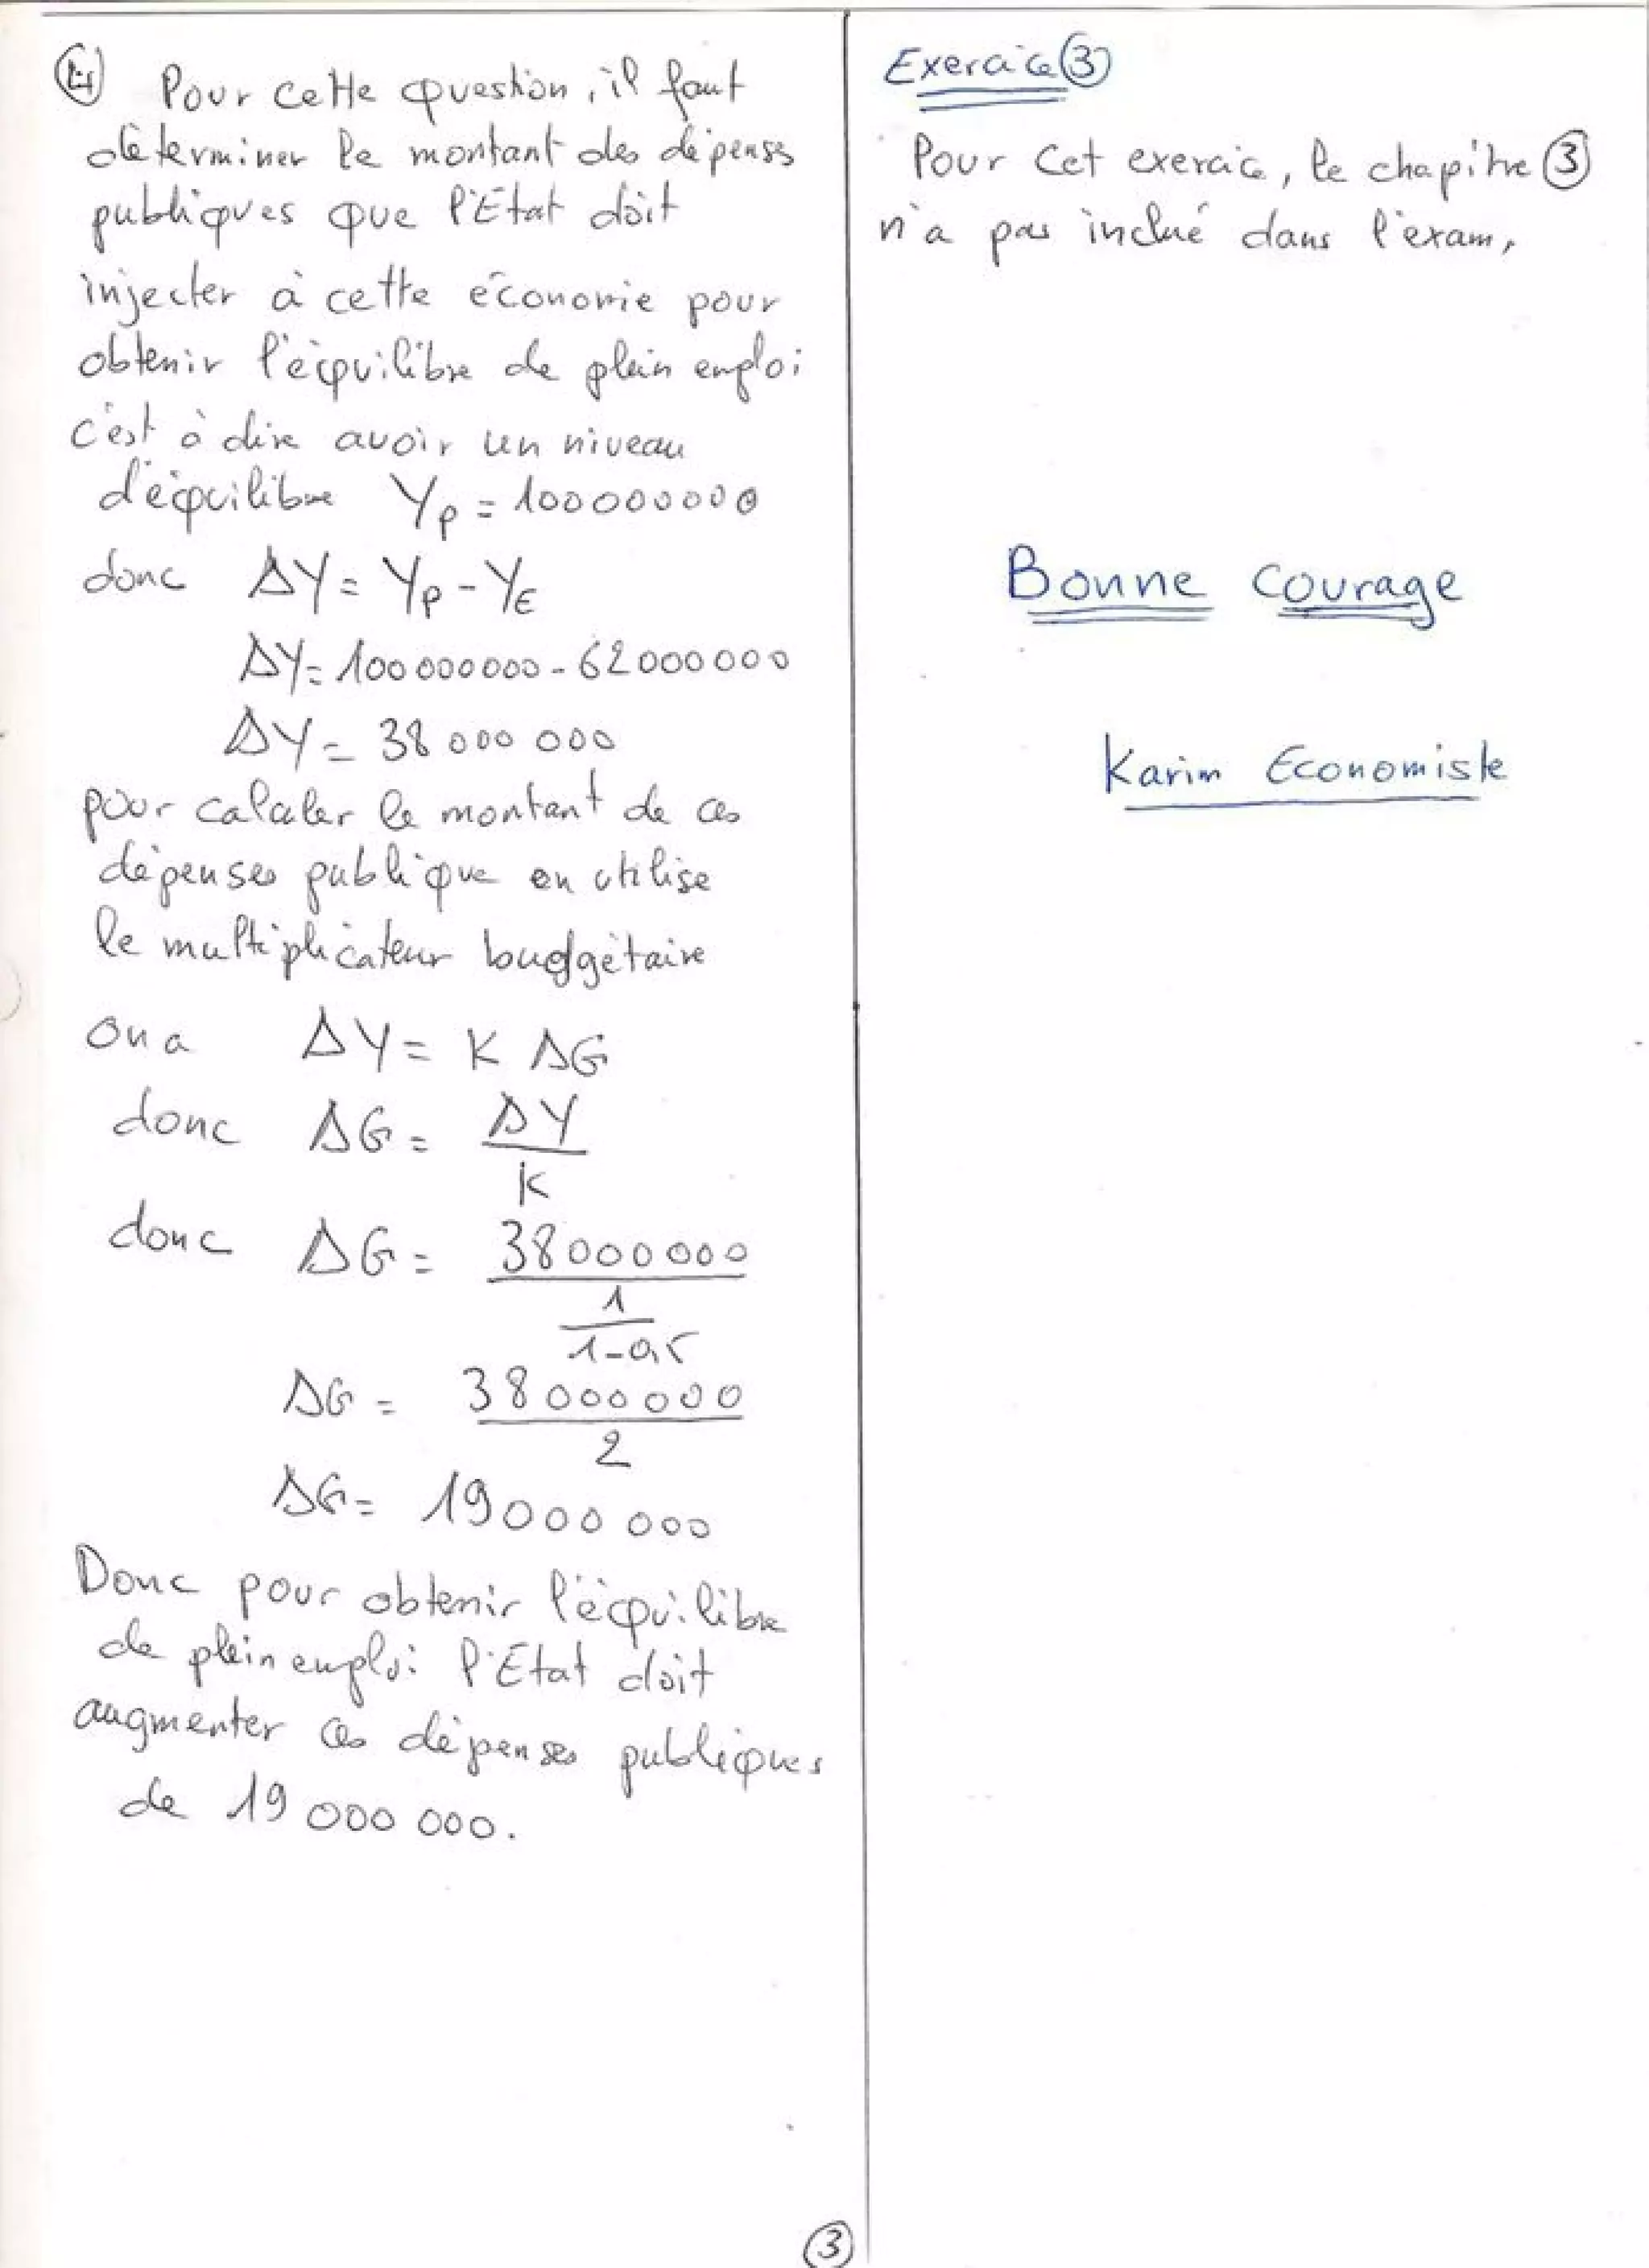 ④ Pour cette question, il faut
déterminer le montant des dépenses
publiques que l'Etat doit
injecter à cette économie pour
obtenir l'équilibre de plein emploi
c'est à dire avoir un niveau
d'équilibre Yp = 100000000
donc ΔY = Yp - YE
ΔY = 100 000 000 - 62 000 000
ΔY = 38 000 000
pour calculer le montant de ces
dépenses publique en utilise
le multiplicateur budgétaire
on a ΔY = K ΔG
donc ΔG = ΔY
K
donc ΔG = 38 000 000
1
1-0,5
ΔG = 38 000 000
2
ΔG = 19 000 000
Donc pour obtenir l'équilibre
de plein emploi l'Etat doit
augmenter ces dépenses publiques
de 19 000 000.
Exercice ③
Pour cet exercice, le chapitre ③
n'a pas inclué dans l'exam,
Bonne courage
Karim Economiste
③